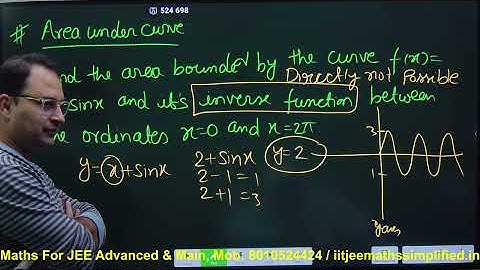 524 698
# Area under curve
nd the area bounded by the curve f(x)=
Directly not Possible
sinx and it's inverse function between
e ordinates x=0 and x=2π
y=x+sinx
2+sinx
2-1=1
2+1=3
y=2
3
1
Maths For JEE Advanced & Main, Mob: 8010524424 / iitjeemathssimplified.in